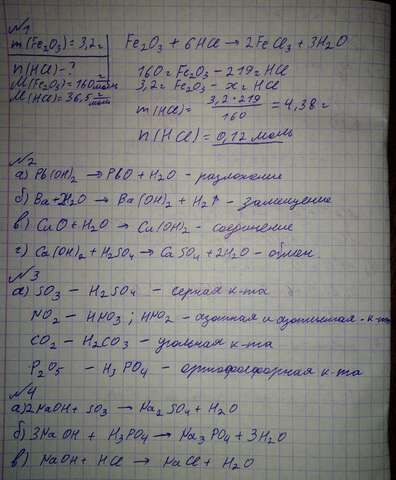 №1
m(Fe2O3)=3,2г Fe2O3 + 6HCl → 2FeCl3 + 3H2O
n(HCl) - ? 160г Fe2O3 - 219г HCl
M(Fe2O3)=160 г/моль 3,2г Fe2O3 - xг HCl
M(HCl)=36,5 г/моль m(HCl)= 3,2·219/160 = 4,38г
n(HCl)=0,12 моль
№2
а) Pb(OH)2 → PbO + H2O - разложение
б) Ba+H2O → Ba(OH)2 + H2↑ - замещение
в) CuO+H2O → Cu(OH)2 - соединение
г) Ca(OH)2 + H2SO4 → CaSO4 + 2H2O - обмен.
№3
а) SO3 - H2SO4 - серная к-та
NO2 - HNO3; HNO2 - азотная и азотистая к-т
CO2 - H2CO3 - угольная к-та
P2O5 - H3PO4 - ортофосфорная к-та
№4
а) 2NaOH + SO3 → Na2SO4 + H2O
б) 3NaOH + H3PO4 → Na3PO4 + 3H2O
в) NaOH + HCl → NaCl + H2O